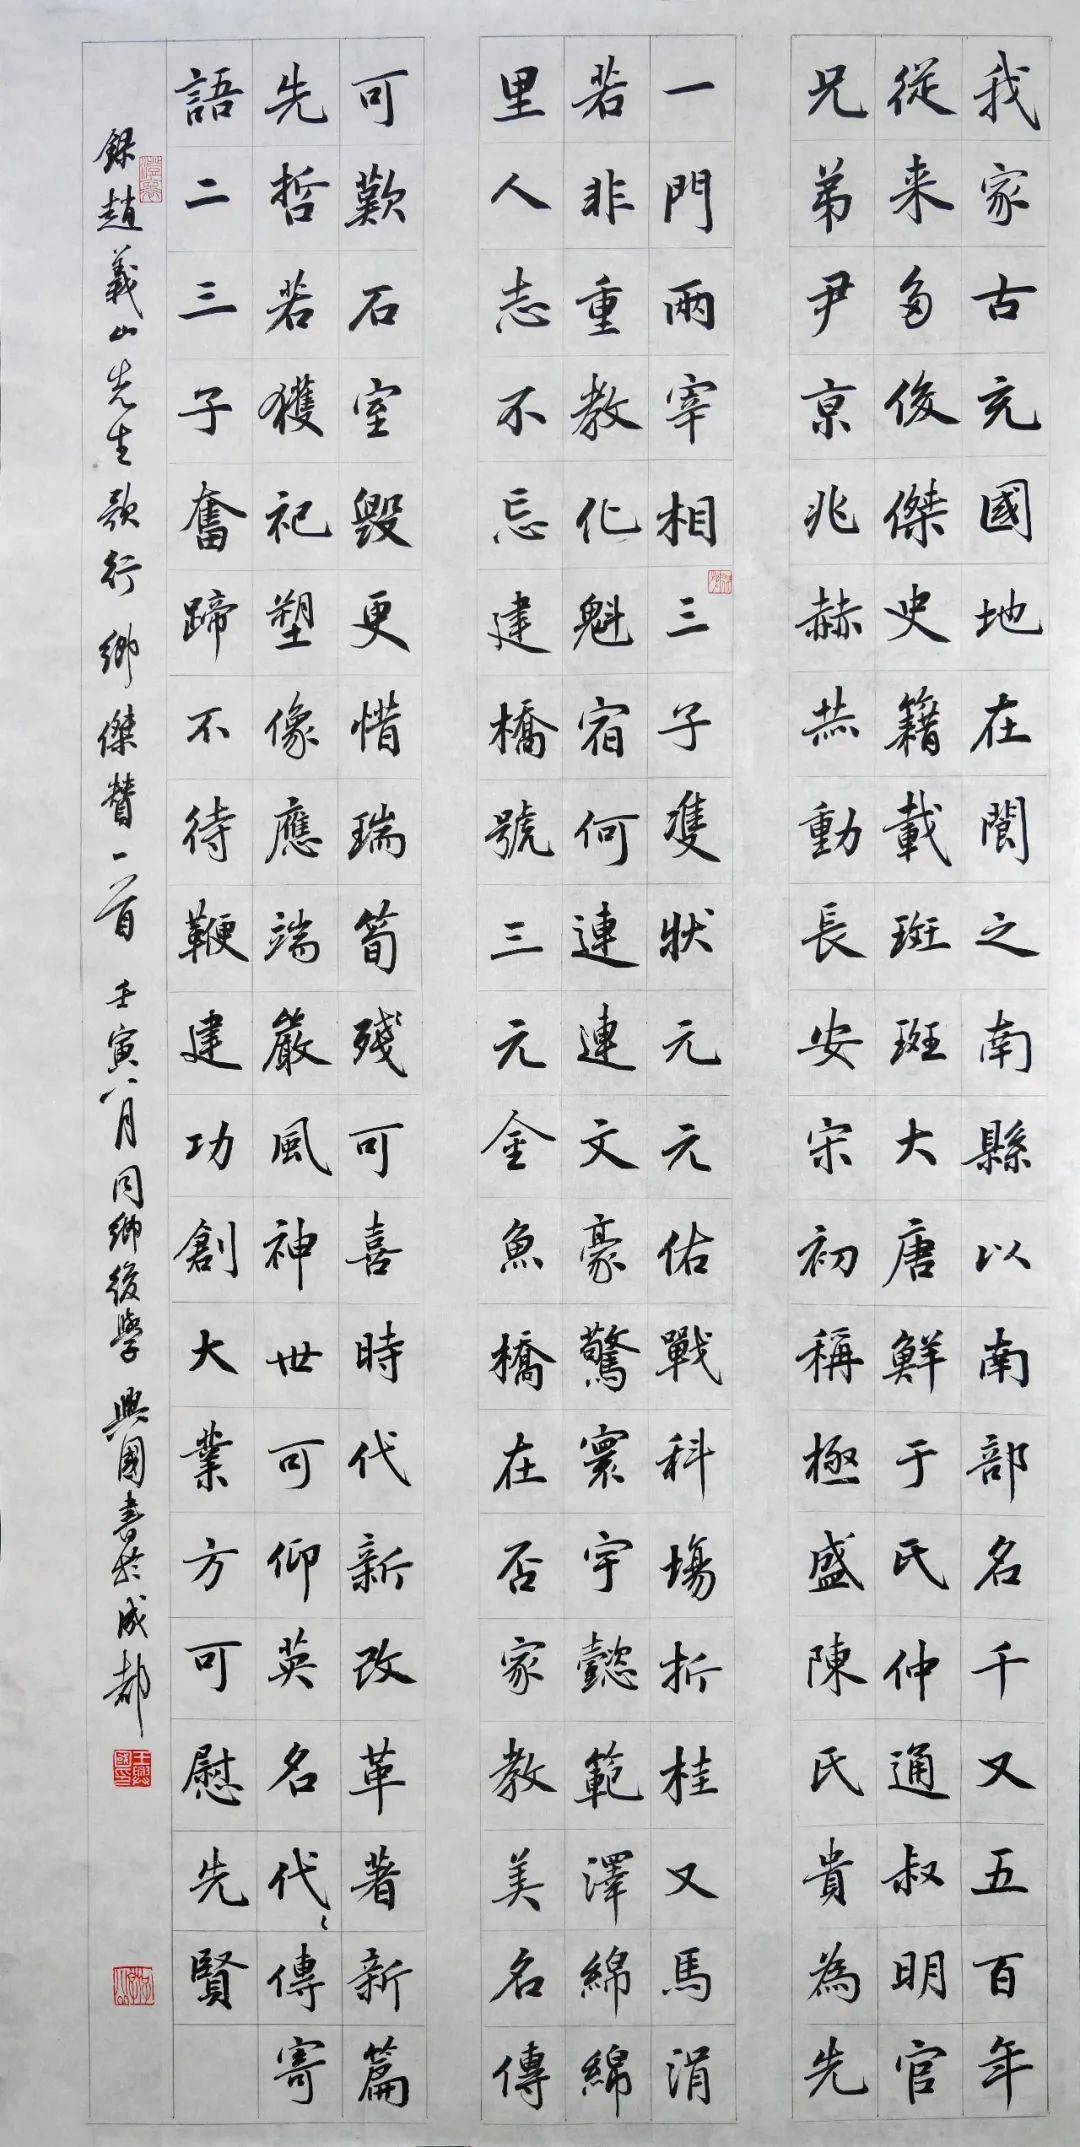 我家古充國地在閬之南縣以南部名千又五百年
從来多俊傑史籍載斑斑大唐鮮于氏仲通叔明官
兄弟尹京兆赫赫動長安宋初稱極盛陳氏貴為先
一門兩宰相三子雙狀元元佑戰科場折桂又馬涓
若非重教化魁宿何連連文豪驚寰宇懿範澤綿綿
里人志不忘建橋號三元金魚橋在否家教美名傳
可歎石室毀更惜瑞筍殘可喜時代新改革著新篇
先哲若獲祀塑像應端嚴風神世可仰英名代〻傳寄
語二三子奮蹄不待鞭建功創大業方可慰先賢
錄趙義山先生歌行鄉傑贊一首 壬寅八月同鄉後學興國書於成都
王興國印